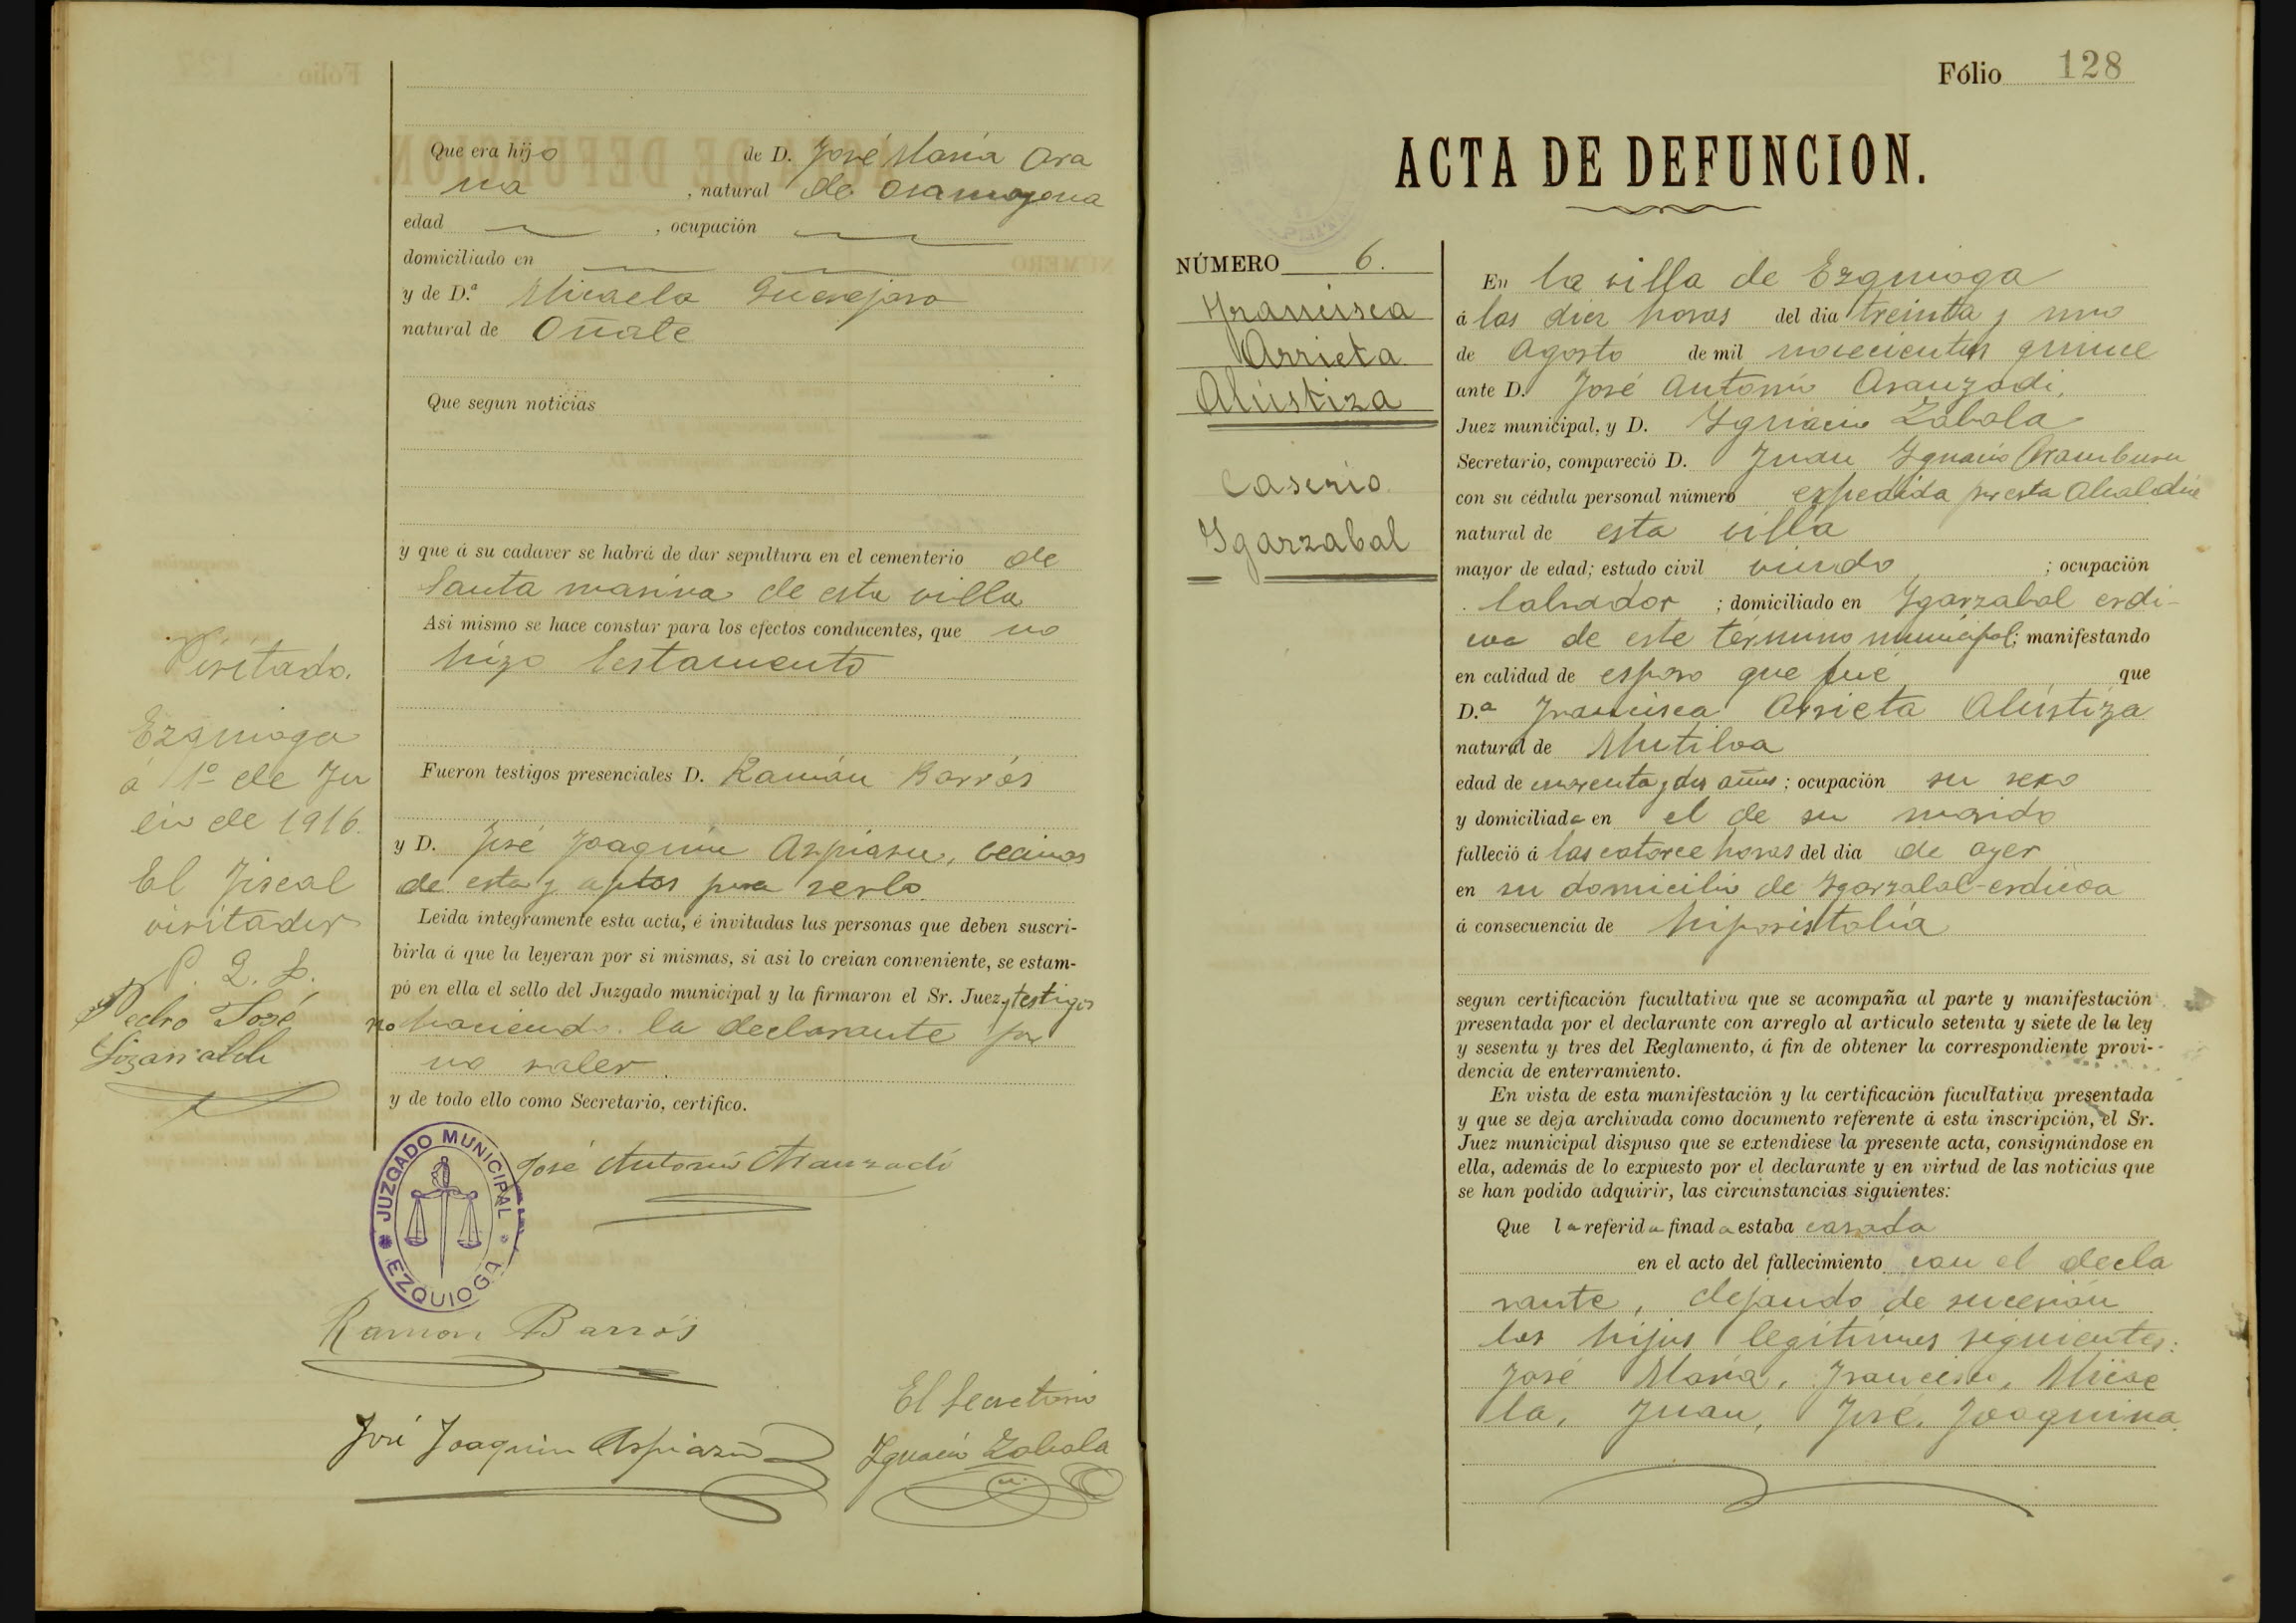 Que era hijo de D. José María Ara
na, natural de Oramayona
edad , ocupación
domiciliado en
y de D.ª Micaela
natural de Oñate
Que segun noticias
y que á su cadaver se habrá de dar sepultura en el cementerio de
Santa marina de esta villa
Asi mismo se hace constar para los efectos conducentes, que no
hizo testamento
Fueron testigos presenciales D. Ramón Barrós
y D. José Joaquin Aspiasu, vecinos
de esta y aptos para serlo.
Leida integramente esta acta, é invitadas las personas que deben suscri-
birla á que la leyeran por si mismas, si asi lo creian conveniente, se estam-
pó en ella el sello del Juzgado municipal y la firmaron el Sr. Juez y testigos
no haciendo la declarante por
no saber.
y de todo ello como Secretario, certifico.
José Antonio Aranzadi
JUZGADO MUNICIPAL
EZQUIOGA
Ramon Barrós
José Joaquin Aspiazu
El Secretario
Ignacio Zabala
Visitado.
Ezquioga
á 1º de Ju
lio de 1916.
El Fiscal
visitador
P. D. S.
Pedro José
Fólio 128
ACTA DE DEFUNCION.
NÚMERO 6.
Francisca
Arrieta
Alústiza
Caserio
Ygarzabal
En la villa de Ezquioga
á las diez horas del dia treinta y uno
de Agosto de mil novecientos quince
ante D. José Antonio Aranzadi,
Juez municipal, y D. Ygnacio Zabala
Secretario, compareció D. Juan Ygnacio Aramburu
con su cédula personal número expedida por esta Alcaldia
natural de esta villa
mayor de edad; estado civil viudo ; ocupación
labrador ; domiciliado en Ygarzabal erdi-
coa de este término municipal; manifestando
en calidad de esposo que fué que
D.ª Francisca Arrieta Alústiza
natural de Mutiloa
edad de cuarenta y dos años; ocupación su sexo
y domiciliada en el de su marido
falleció á las catorce horas del dia de ayer
en su domicilio de Ygarzabal-erdicoa
á consecuencia de hiposistolia
segun certificación facultativa que se acompaña al parte y manifestación
presentada por el declarante con arreglo al artículo setenta y siete de la ley
y sesenta y tres del Reglamento, á fin de obtener la correspondiente provi-
dencia de enterramiento.
En vista de esta manifestación y la certificación facultativa presentada
y que se deja archivada como documento referente á esta inscripción, el Sr.
Juez municipal dispuso que se extendiese la presente acta, consignándose en
ella, además de lo expuesto por el declarante y en virtud de las noticias que
se han podido adquirir, las circunstancias siguientes:
Que la referida finada estaba casada
en el acto del fallecimiento con el decla
rante, dejando de sucesión
los hijos legítimos siguientes:
José María, Francisco, Micae
la, Juan, José, Joaquina